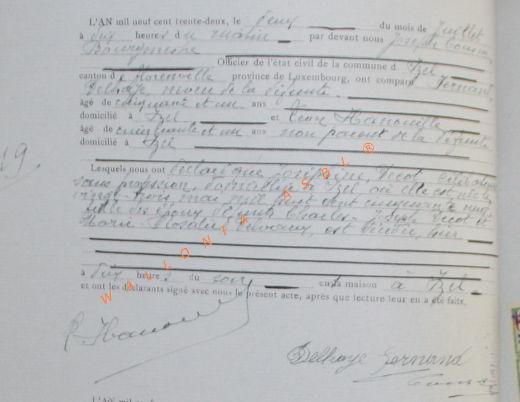 L'AN mil neuf cent trente-deux, le deux du mois de Juillet
à dix heures du matin par devant nous Joseph
Bourgmestre
Officier de l'état civil de la commune d'Izel
canton de Florenville province de Luxembourg, ont comparu Fernand
Delhaye neveu de la défunte
âgé de cinquante et un ans
domicilié à Izel et Léon Hanouille
âgé de cinquante et un ans non parent de la défunte
domicilié à Izel
19
Lesquels nous ont déclaré que Joséphine Ticot célibataire
sans profession domiciliée à Izel où elle est née le
vingt trois mai mil huit cent cinquante neuf
fille des époux défunts Charles-Joseph Ticot et
Marie-Rosalie est décédée hier
à dix heures du soir en sa maison à Izel
et ont les déclarants signé avec nous le présent acte, après que lecture leur en a été faite.
WALLONIA ASBL ®
Delhaye Fernand